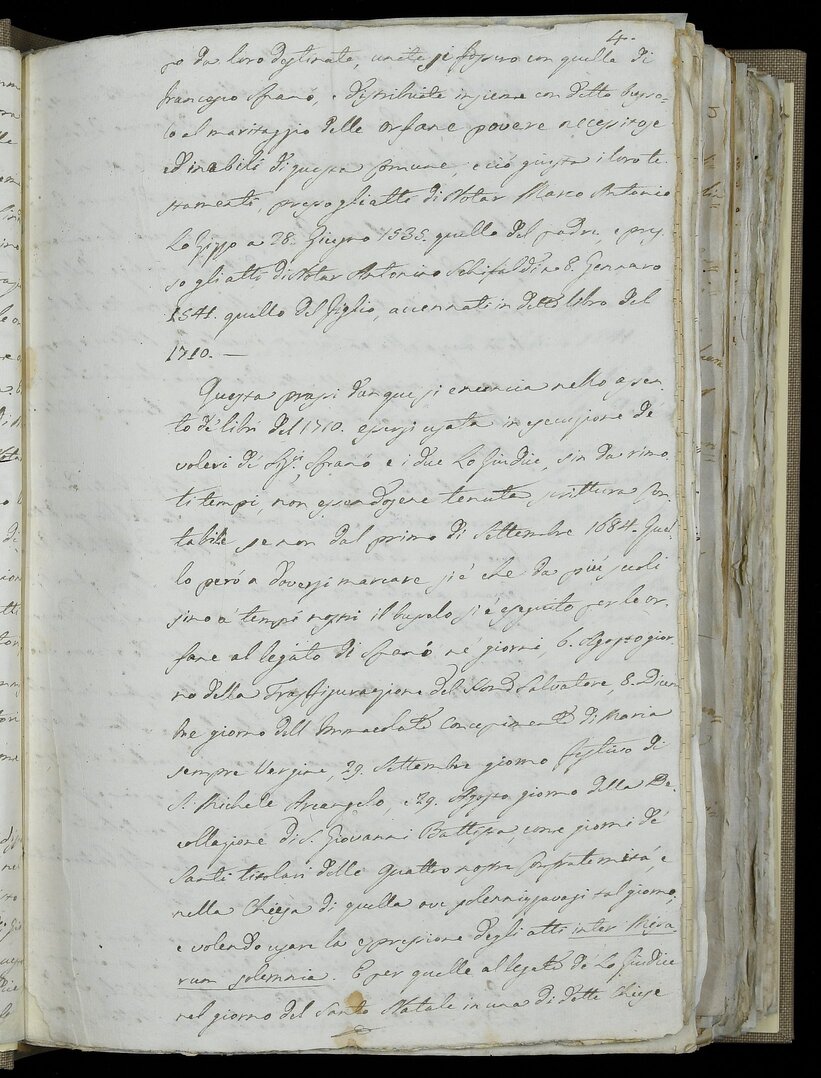 4.
po da loro destinate, unite si fossero con quelle di
francesco Spanò, e distribuite insieme con detto busso-
lo al maritaggio delle orfane povere necessitose
ed inabili di questa Comune, e ciò giusta i loro te-
stamenti, presso gli atti di Notar Marco Antonio
Lo Gippo a 28. Giugno 1535. quello del padre, e pres-
so gli atti di Notar Antonino Schifaldino 8. Gennaro
1541. quello del figlio, accennati in detto libro del
1710. —
Questa prassi dunque si enuncia nello asen-
to de' libri del 1710. essersi usata in esecuzione de'
voleri de' Spanò e i due Lo Giudice, sin da rimo-
ti tempi, non essendosene tenuta scrittura con-
tabile se non dal primo di Settembre 1684. Quel-
lo però a doversi marcare si è che da più secoli
sino a' tempi nostri il bussolo si è eseguito per le or-
fane al legato di Spanò ne' giorni, 6. Agosto gior-
no della Trasfigurazione del Salvatore, 8. Dicem-
bre giorno dell' Immacolato Concepimento di Maria
sempre Vergine, 29. Settembre giorno festivo di
S. Michele Arcangelo, e 29. Agosto giorno della De-
collazione di S. Giovanni Battista, come giorni de'
Santi titolari delle quattro nostre Confraternità, e
nella Chiesa di quella ove solennizzavasi tal giorno;
e volendo usare la espressione degli atti inter Missa-
rum solemnia. E per quelle al legato de' Lo Giudice
nel giorno del Santo Natale in una di dette Chiese